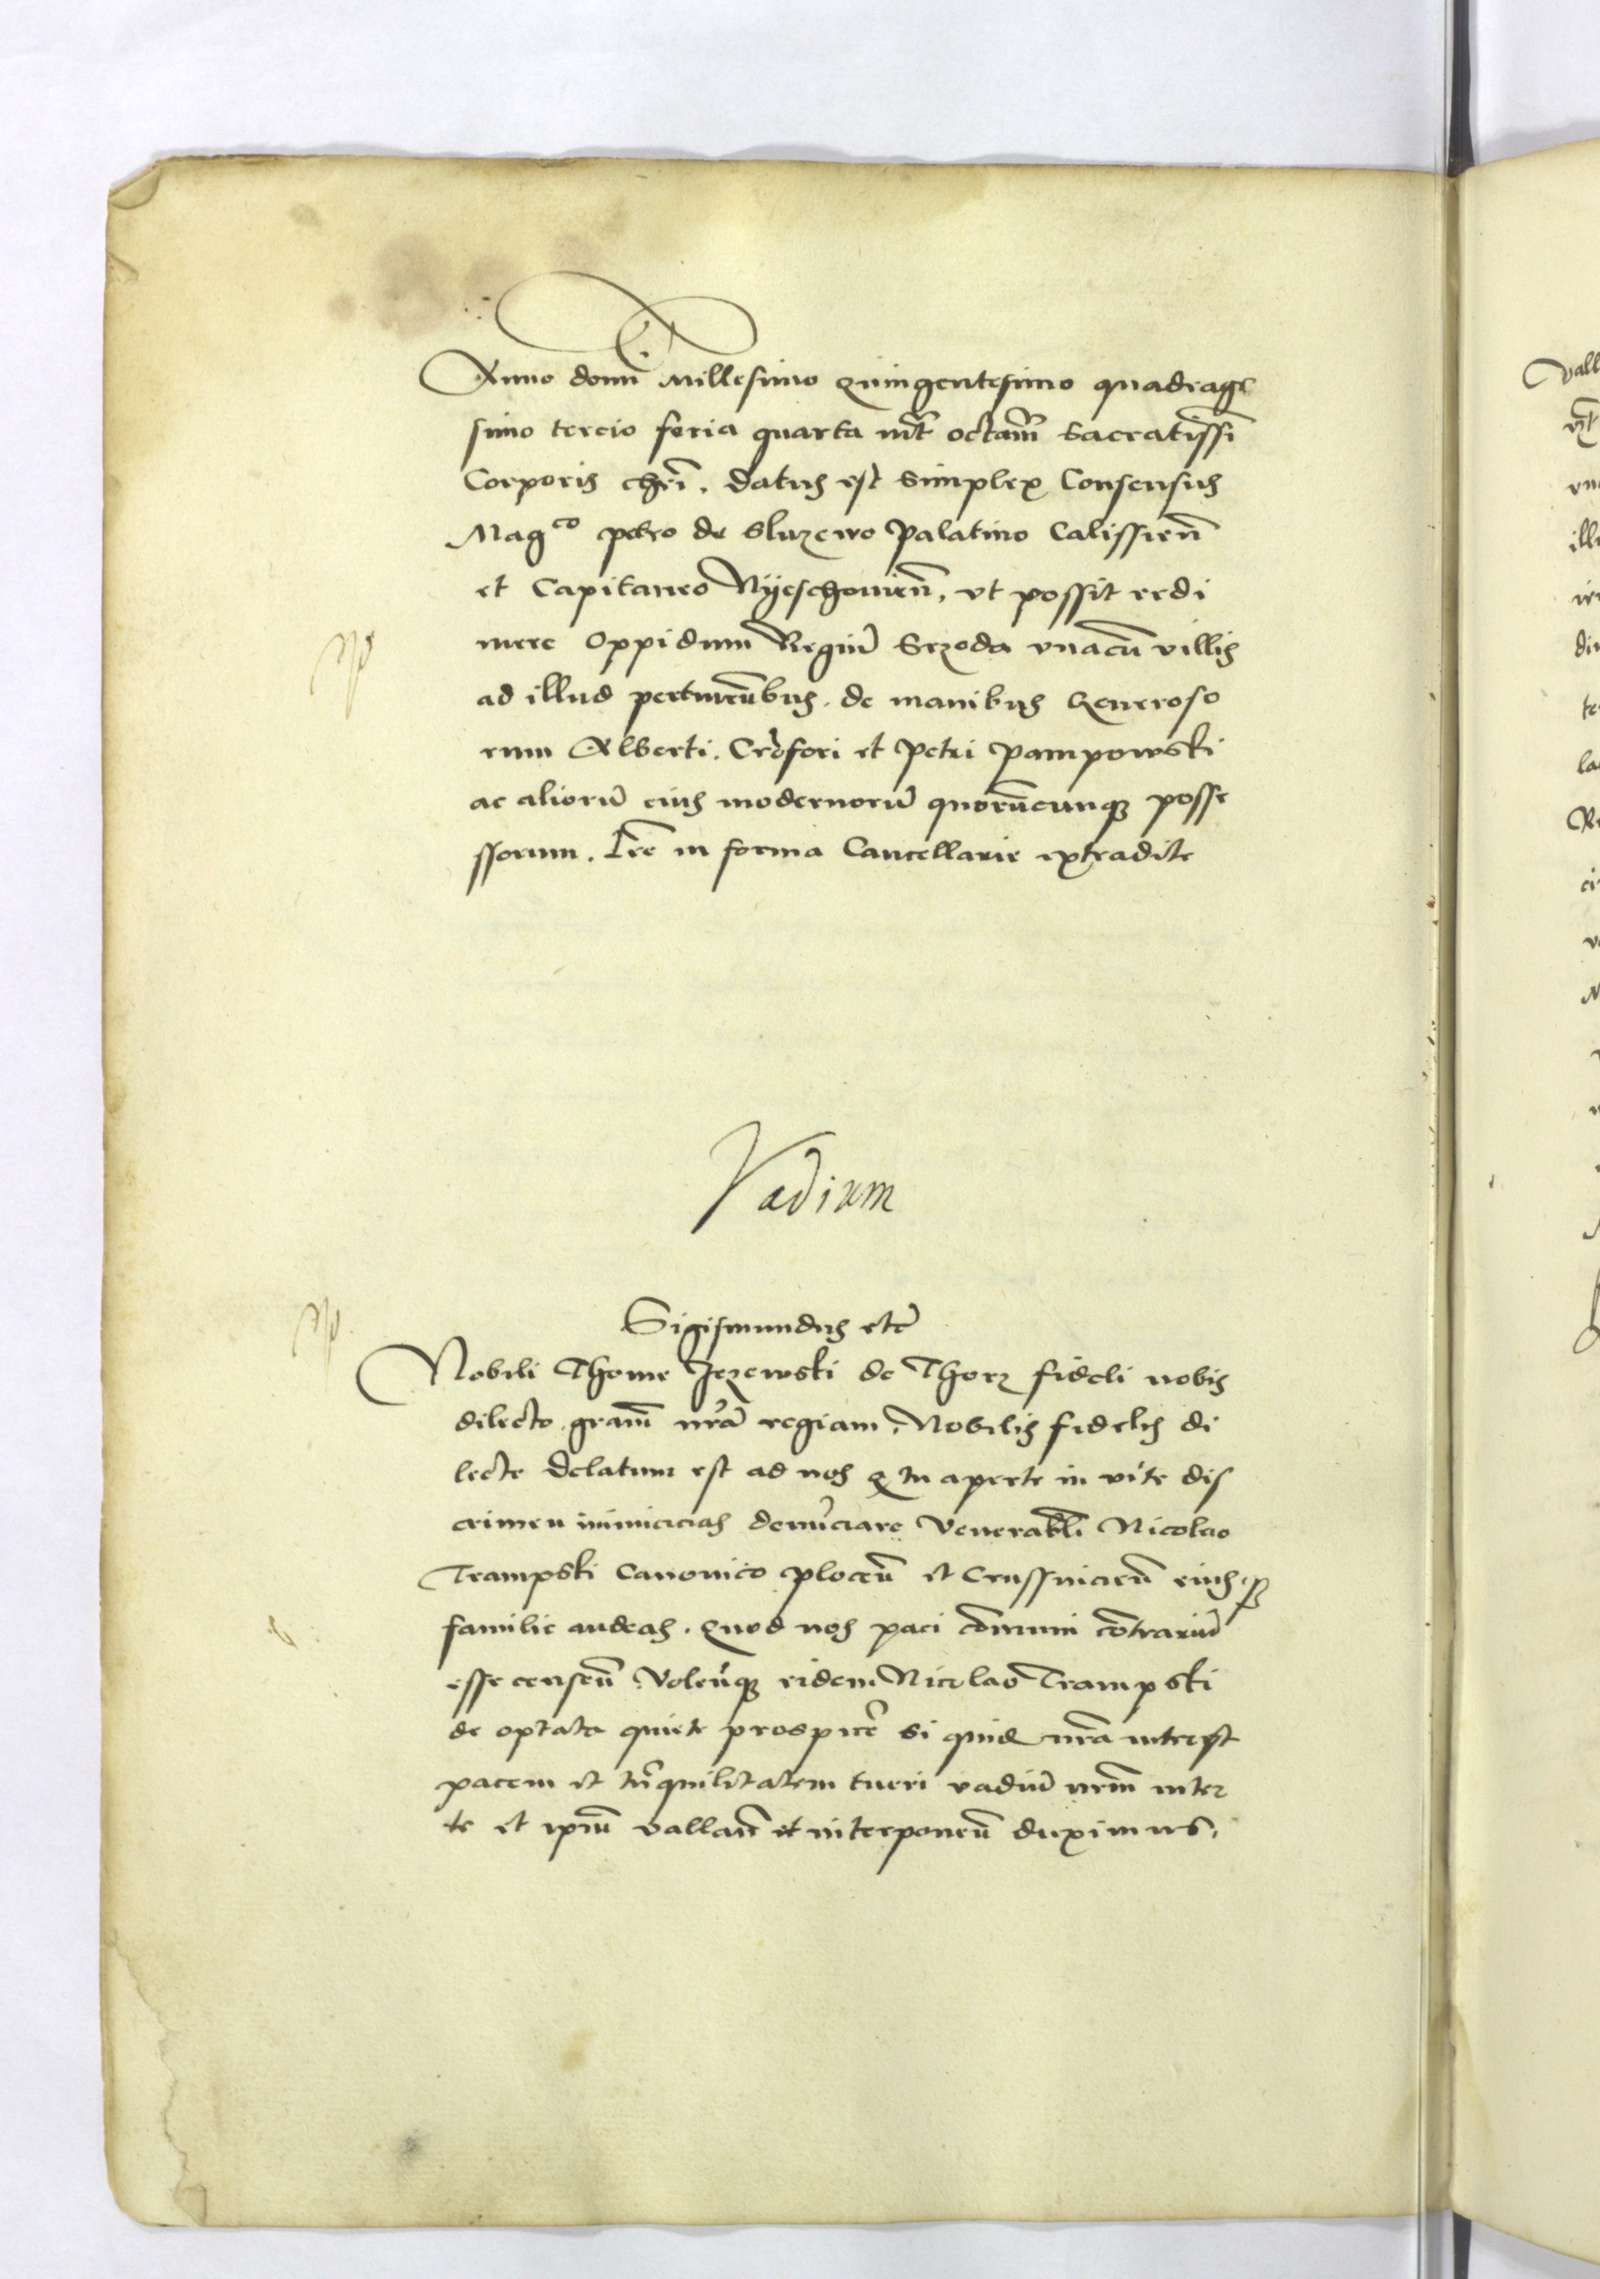 Anno domi Millesimo Quingentesimo quadrage
simo tercio feria quarta infr octavam Sacratissi
Corporis chri. datus est Simplex Consensus
Mag^co petro de Sluzewo Palatino Calissien
et Capitaneo Nyeschovien, ut possit redi
mere Oppidum Regium Srzoda unacu villis
ad illud pertineubus. de manibus Generoso
rum Alberti. Crofori et Petri Pampowski
ac alioru eius modernoru quorucunq posse
ssorum. Lre in forma Cancellarie extradite
Vadium
Sigismundus etc
Nobili Thome Jezewski de Thorz fideli nobis
dilecto gram nram regiam. Nobilis fidelis di
lecte delatum est ad nos q tu aperte in vite dis
crimen inimicicias denuciare Venerabli Nicolao
Trampski Canonico plocen et Crussvicien eiusq
familie audeas. Quod nos paci comuni contrariu
esse censen Volenq eidem Nicolao Trampski
de optata quiete prospicere si quid nra interest
pacem et tranquilitatem tueri vadiu nrm inter
te et ipsu vallan et interponen duximus.